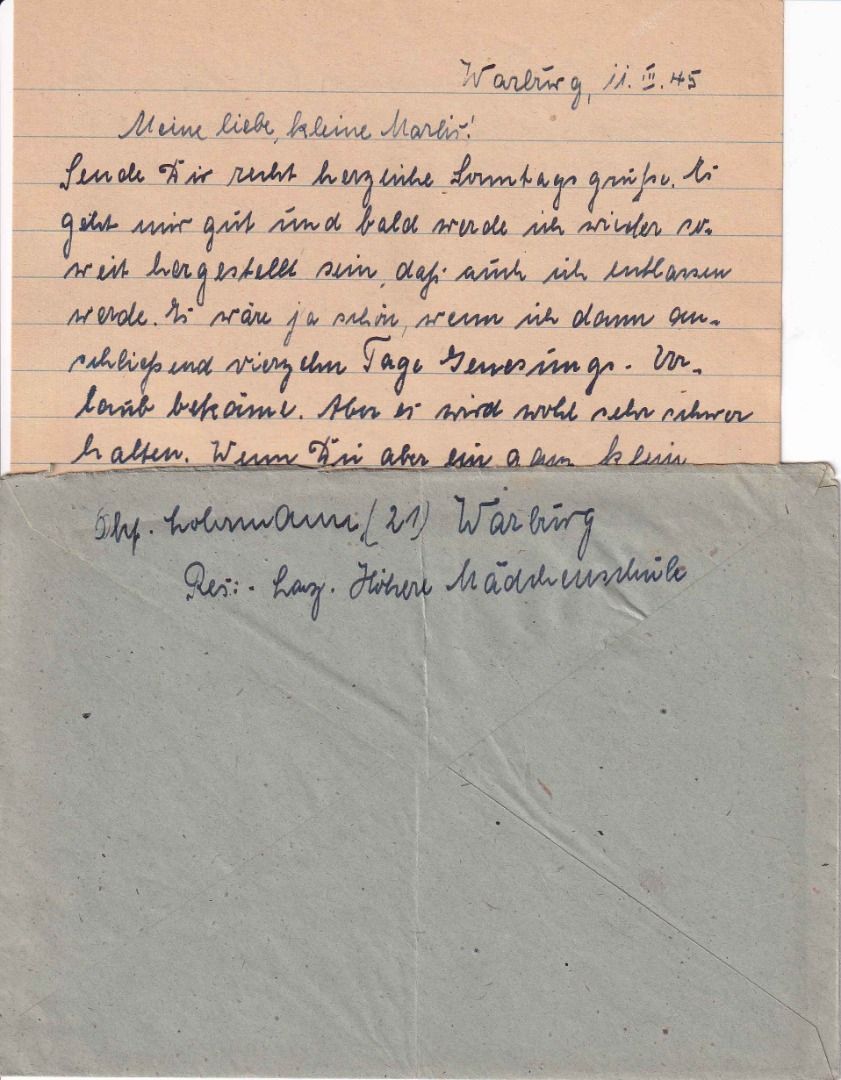 Warburg, 11. III. 45
Meine liebe, kleine Marlis!
Sende Dir recht herzliche Sonntagsgrüße. Es
geht mir gut und bald werde ich wieder so-
weit hergestellt sein, daß auch ich entlassen
werde. Es wäre ja schön, wenn ich dann an-
schließend vierzehn Tage Genesungs-Ur-
laub bekäme. Aber es wird wohl sehr schwer
halten. Wenn Du aber ein ganz klein
Lohrmann (21) Warburg
Res.-Laz. Höhere Mädchenschule